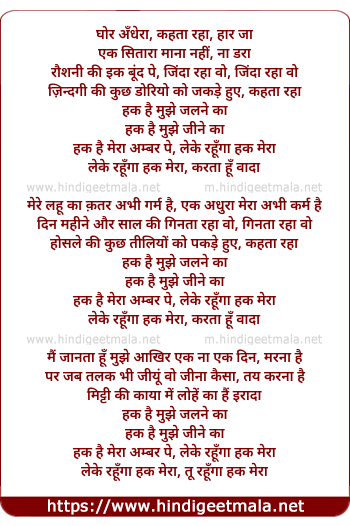 घोर अँधेरा, कहता रहा, हार जा
एक सितारा माना नहीं, ना डरा
रौशनी की इक बूंद पे, जिंदा रहा वो, जिंदा रहा वो
ज़िन्दगी की कुछ डोरियो को जकड़े हुए, कहता रहा
हक है मुझे जलने का
हक है मुझे जीने का
हक है मेरा अम्बर पे, लेके रहूँगा हक मेरा
लेके रहूँगा हक मेरा, करता हूँ वादा
www.hindigeetmala.net m.hindigeetmala.net
मेरे लहू का क़तर अभी गर्म है, एक अधुरा मेरा अभी कर्म है
दिन महीने और साल की गिनता रहा वो, गिनता रहा वो
होसले की कुछ तीलियों को पकड़े हुए, कहता रहा
हक है मुझे जलने का
हक है मुझे जीने का
हक है मेरा अम्बर पे, लेके रहूँगा हक मेरा
लेके रहूँगा हक मेरा, करता हूँ वादा
www.hindigeetmala.net m.hindigeetmala.net
मैं जानता हूँ मुझे आखिर एक ना एक दिन, मरना है
पर जब तलक भी जीयूं वो जीना कैसा, तय करना है
मिट्टी की काया में लोहें का हैं इरादा
हक है मुझे जलने का
हक है मुझे जीने का
हक है मेरा अम्बर पे, लेके रहूँगा हक मेरा
लेके रहूँगा हक मेरा, तू रहूँगा हक मेरा
https://www.hindigeetmala.net